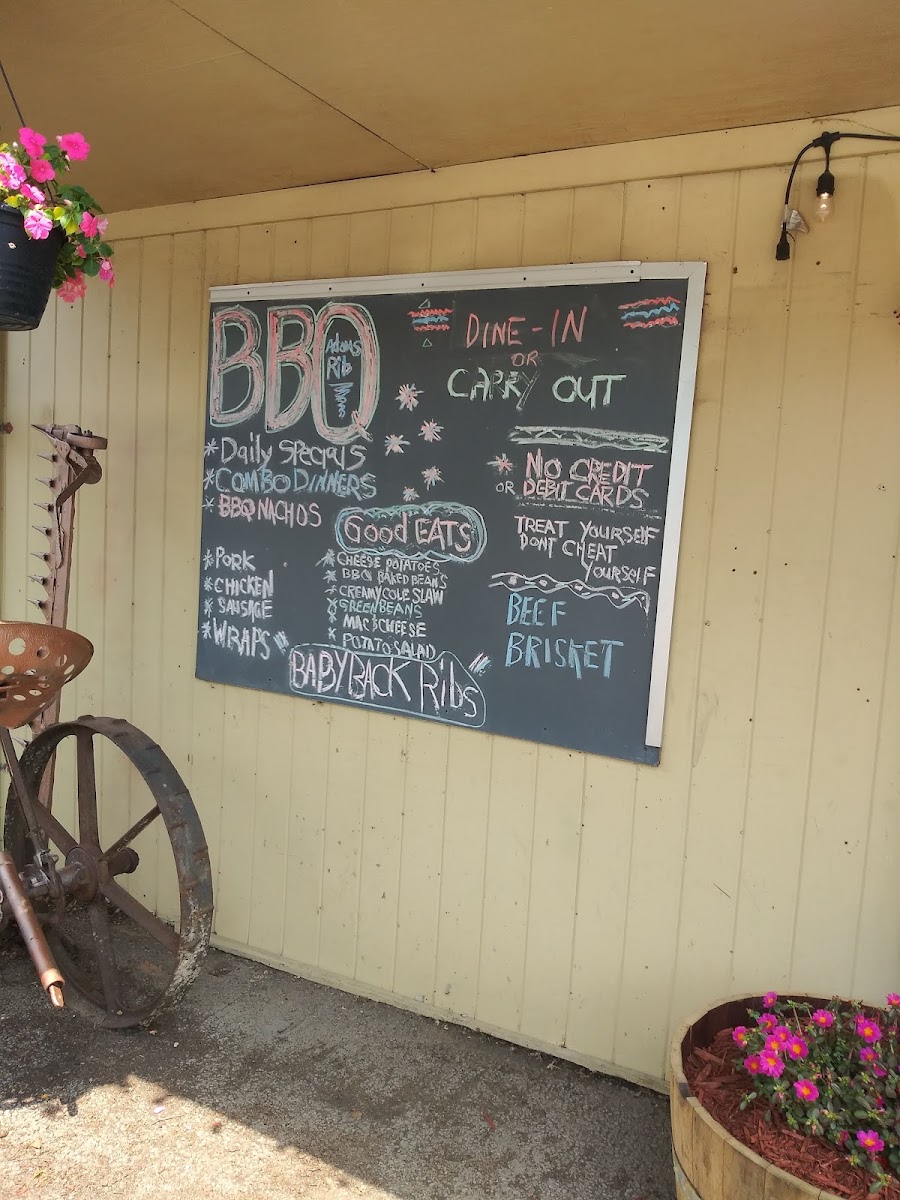 BBQ
Adams
Rib
* Daily Specials
* COMBO DINNERS
* BBQ NACHOS
* PORK
* CHICKEN
* SAUSAGE
* WRAPS
Good EATS
* CHEESE POTATOES
* BBQ BAKED BEANS
* CREAMY COLE SLAW
* GREEN BEANS
* MAC & CHEESE
* POTATO SALAD
BABY BACK Ribs
DINE-IN
OR
CARRY OUT
* NO CREDIT
OR DEBIT CARDS
TREAT YOURSELF
DONT CHEAT
YOURSELF
BEEF
BRISKET